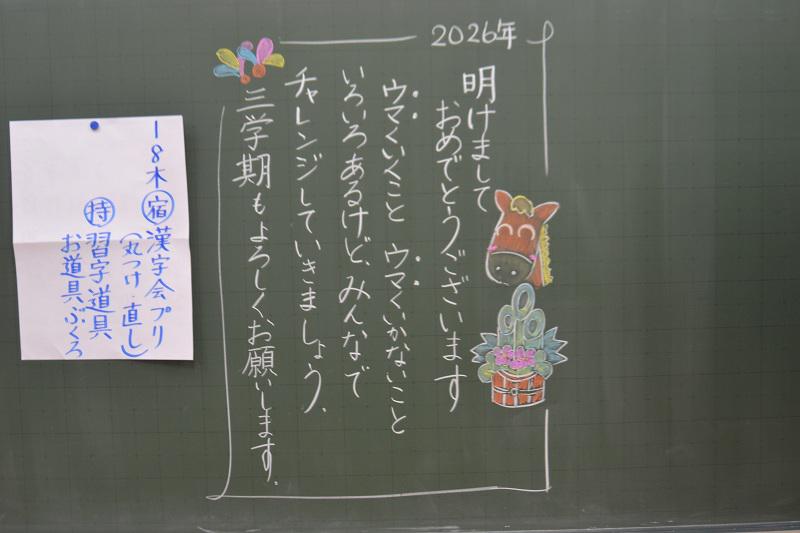 2026年
明けまして
おめでとうございます
ウマくいくこと ウマくいかないこと
いろいろあるけど、みんなで
チャレンジしていきましょう。
三学期もよろしくお願いします。
1 8木 宿 漢字会プリ
(丸つけ・直し)
持 習字道具
お道具ぶくろ